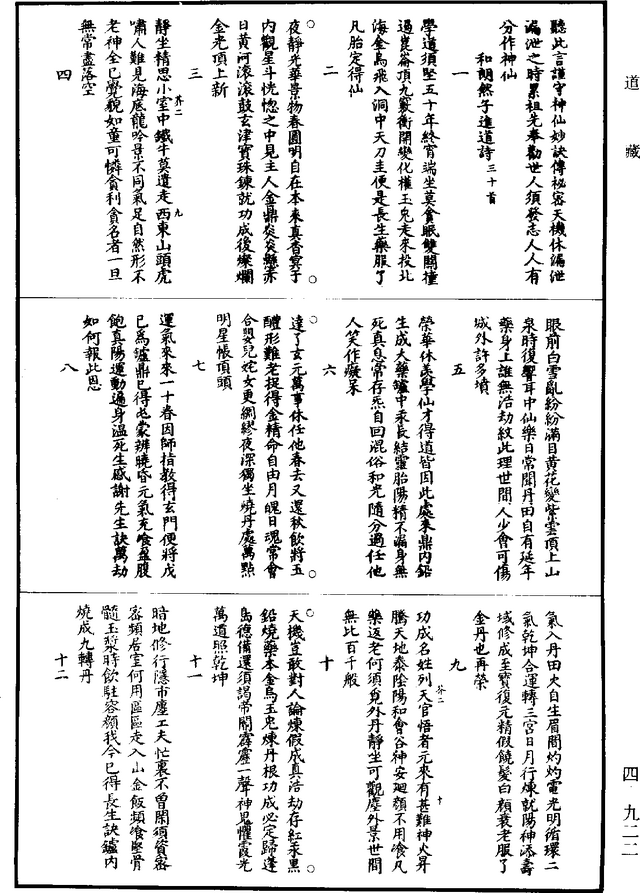 道藏
聽此言謹守神仙妙訣傳祕密天機休漏泄
漏泄之時累祖先奉勸世人須發志人人有
分作神仙
和朗然子進道詩三十首
一
學道須堅五十年終宵端坐莫貪眠雙關撞
過崑崙頂九竅衝開變化權玉兔走來投北
海金烏飛入洞中天刀圭便是長生藥服了
凡胎定得仙
二
夜靜光華景物春圓明自在本來真杳冥于
內觀星斗恍惚之中見主人金鼎炎炎懸赤
日黃河滾滾鼓玄津寶珠鍊就功成後燦爛
金光頂上新
三
芥二
九
靜坐精思小室中鐵牛莫遣走西東山頭虎
嘯人難見海底龍吟景不同氣足自然形不
老神全已覺貌如童可憐貪利貪名者一旦
無常盡落空
四
眼前白雪亂紛紛滿目黃花變紫雲頂上山
泉時復響耳中仙樂日常聞丹田自有延年
藥身上誰無浩劫紋此理世間人少會可傷
城外許多墳
五
榮華休羨學仙才得道皆因此處來鼎內鉛
生成大藥罏中汞長結靈胎陽精不漏身無
死真息常存炁自回混俗和光隨分過任他
人笑作癡呆
六
達了玄元萬事休任他春去又還秋飲將五
醴形難老捉得金精命自由月魄日魂常會
合嬰兒姹女更綢繆夜深獨坐燒丹處萬點
明星帳頂頭
七
運氣來來一十春因師指教得玄門便將戊
已爲罏鼎已得屯蒙辨曉昏元氣充喉盈腹
飽真陽運動遍身溫死生感謝先生訣萬劫
如何報此恩
八
氣入丹田火自生眉間灼灼電光明循環二
氣乾坤合運轉三宮日月行煉就陽神添壽
域修成至寶復元精假饒髮白顏衰老服了
金丹也再榮
九
芥二
十
功成名姓列天官悟者元來有甚難神火昇
騰天地泰陰陽和會谷神安迴顏不用喰凡
藥返老何須覓外丹靜坐可觀塵外景世間
無比百千般
十
天機豈敢對人論煉假成真浩劫存紅汞黑
鉛燒藥本金烏玉兔煉丹根功成必定歸蓬
島德備還須謁帝閽霹靂一聲神鬼懼霞光
萬道照乾坤
十一
暗地修行隱市廛工夫忙裏不曾閑須資密
密頻居室何用區區走入山金飯頻喰堅骨
髓玉漿時飲駐容顏我今已得長生訣罏內
燒成九轉丹
十二
四·九二二